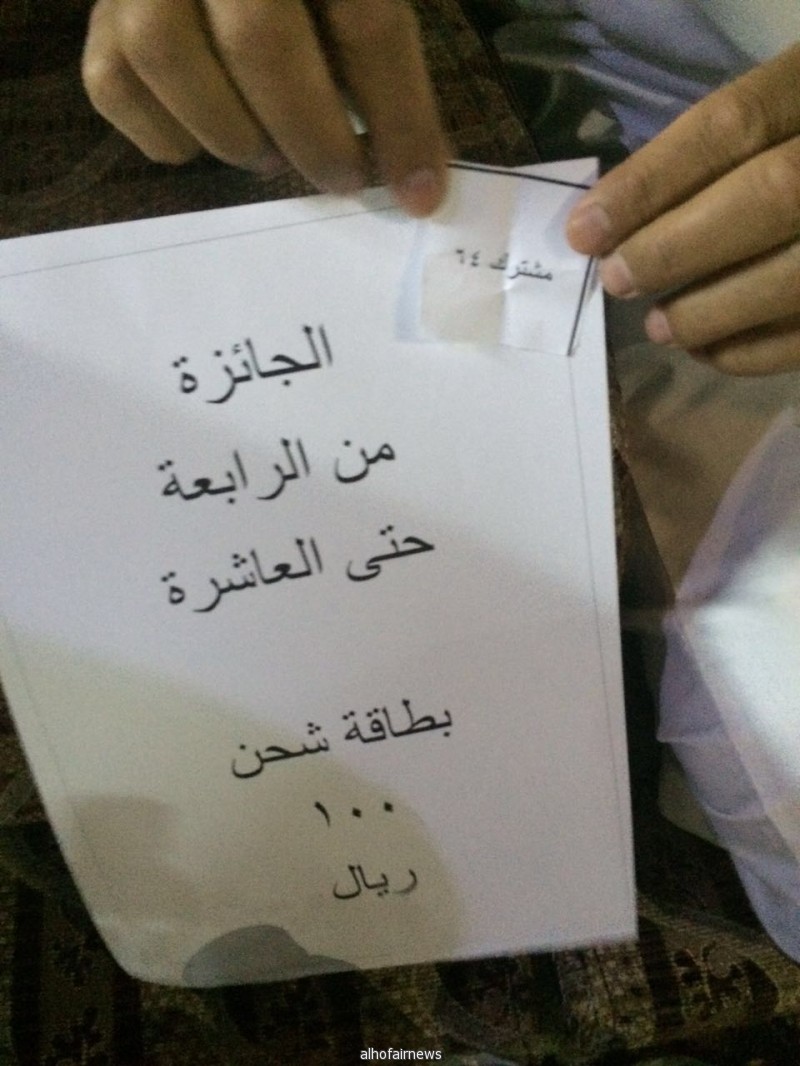 مشترك ٦٤
الجائزة
من الرابعة
حتى العاشرة
بطاقة شحن
١٠٠
ريال
alhofairnews